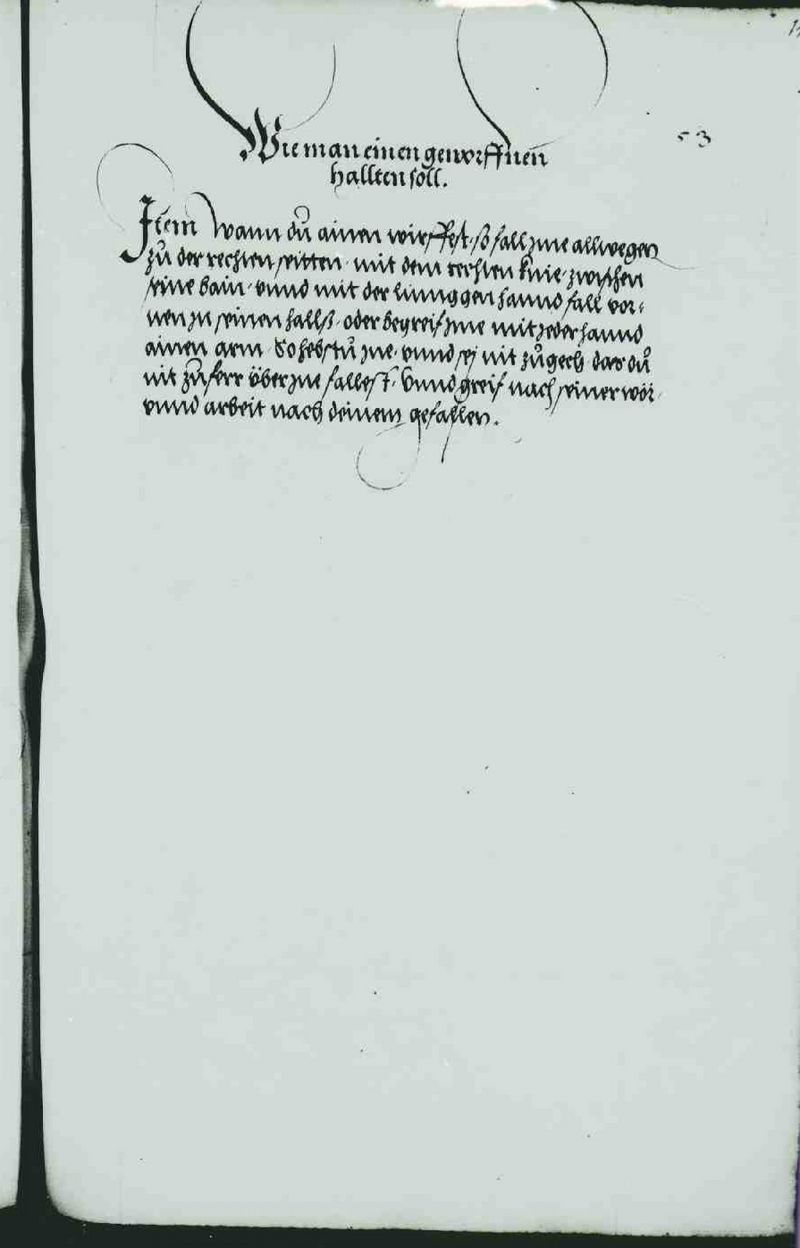 53
Wie man einen geworffnen
hallten soll.
Item Wann dů ainen wirffest, so fall jme allwegen
zů der rechten seitten, mit dem rechten knie, zwischen
seine bain, vnnd mit der linnggen hannd fall vor=
nen zu seinen hallß, oder begreif jme mit jeder hannd
ainen arm, So hebstů jne, vnnd sej nit zů gech, das dů
nit zů ferr über jne fallest, Vnnd greif nach seiner wör,
vnnd arbeit nach deinem gefallen.